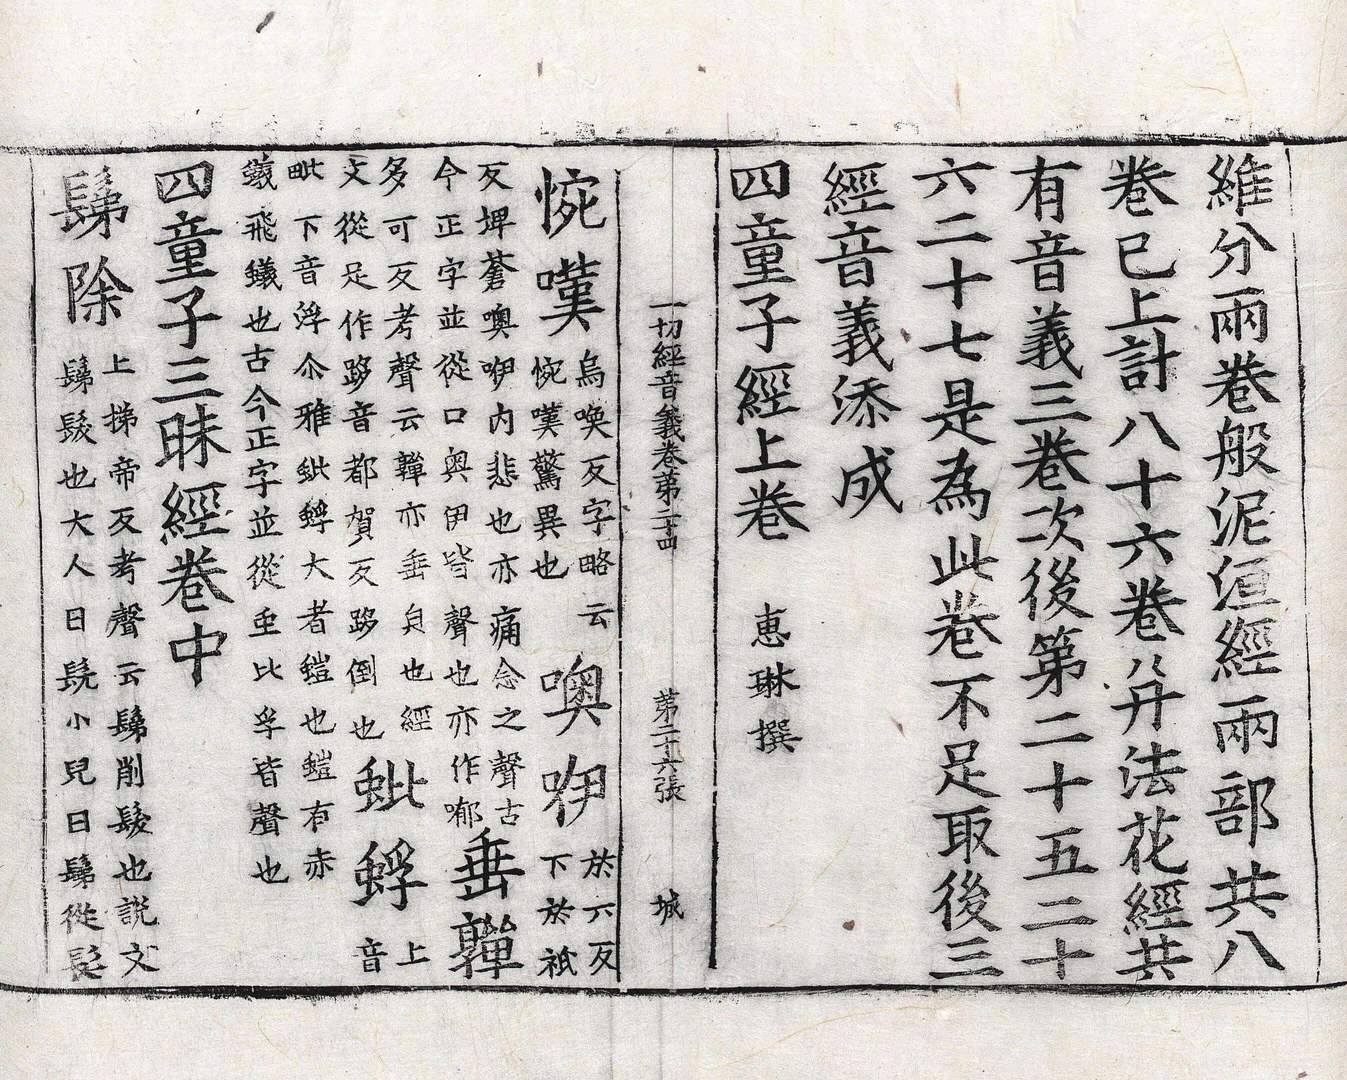 維分兩卷般泥洹經兩部共八
卷已上計八十六卷八并法花經共
有音義三卷次後第二十五二十
六二十七是為此卷不足取後三
經音義添成
四童子經上卷 惠琳撰
一切經音義卷第二十四 第二十六張 城
惋嘆 烏喚反字略云
惋嘆驚異也
噢咿 於六反
下於祇
反埤蒼噢咿內悲也亦痛念之聲古
今正字並從口奧伊皆聲也亦作㖡
垂嚲
多可反考聲云嚲亦垂皃也經
文從足作跢音都賀反跢倒也
蚍蜉 上
音
毗下音浮尒雅蚍蜉大者螘也螘有赤
蟻飛蟻也古今正字並從虫比孚皆聲也
四童子三昧經卷中
鬀除 上梯帝反考聲云鬀削髮也說文
鬀髮也大人曰髡小兒曰鬀從髟